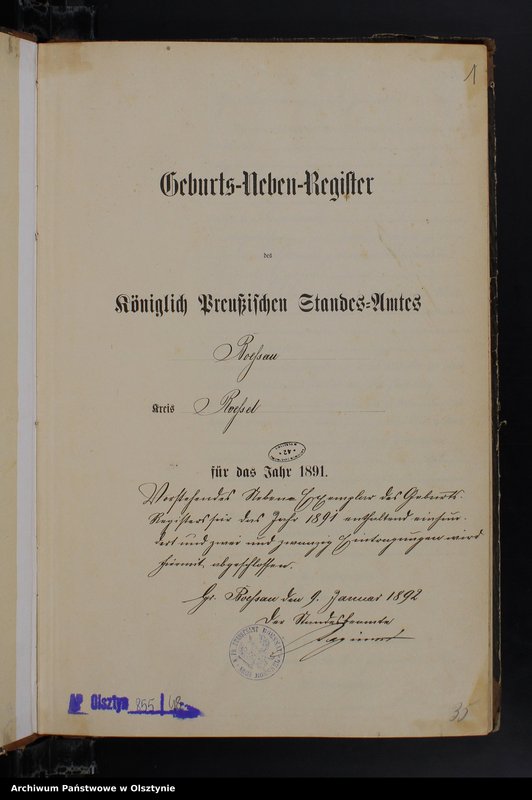 1
Geburts-Neben-Register
des
Königlich Preußischen Standes-Amtes
Boessau
Kreis Roessel
für das Jahr 1891.
Vorstehendes Neben-Exemplar des Geburts-
Registers für das Jahr 1891 enthaltend einhun-
dert und zwei und zwanzig Eintragungen wird
hiermit abgeschlossen.
Gr. Boessau den 9. Januar 1892
Der Standesbeamte
AP Olsztyn 255/
35
Archiwum Państwowe w Olsztynie